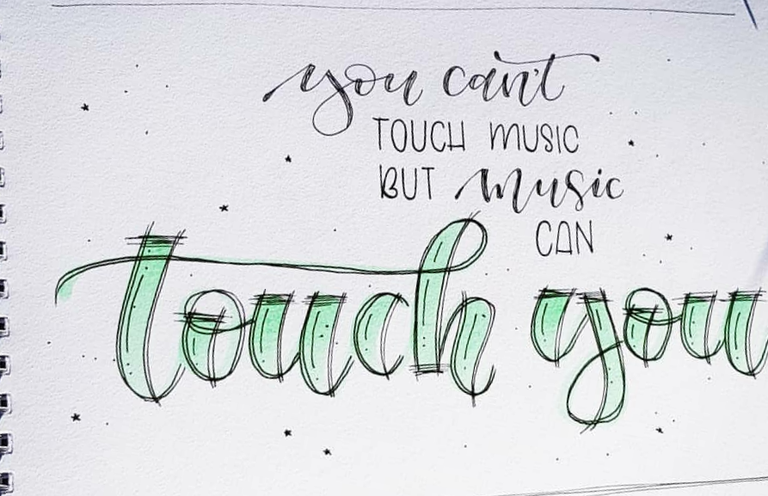 you can't
TOUCH MUSIC
BUT music
CAN
touch you